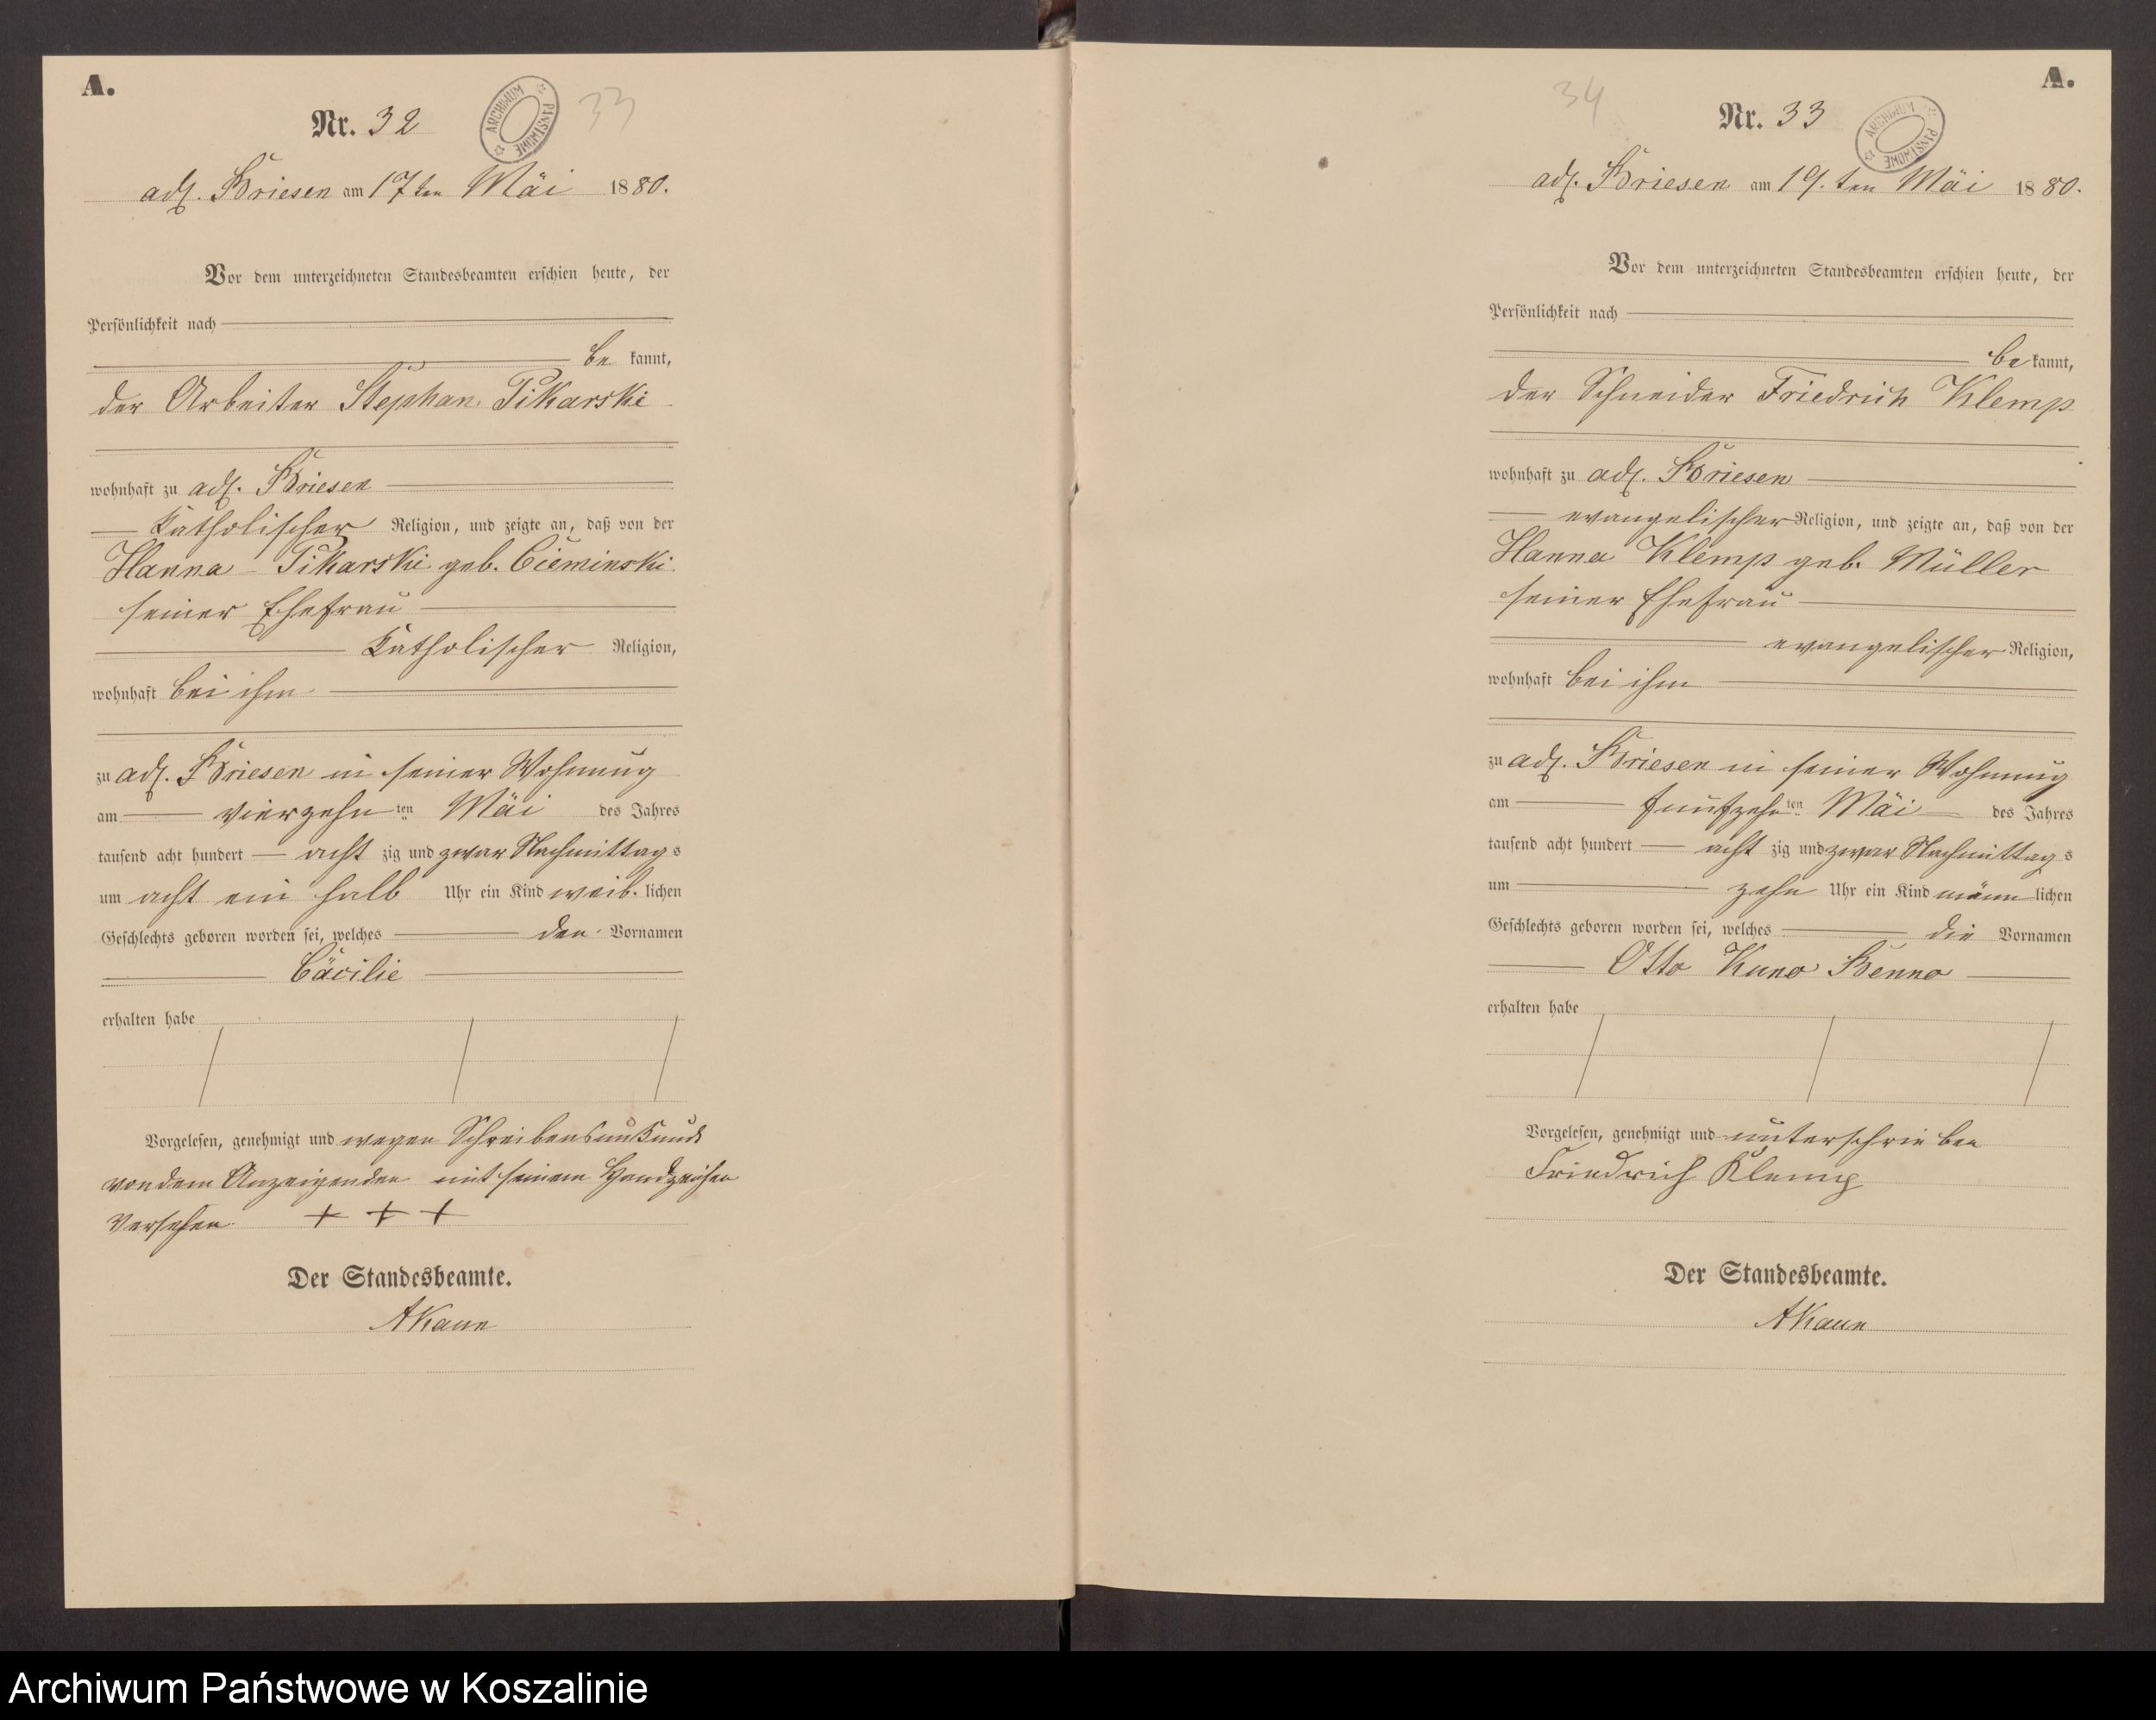 A.
Nr. 32
ARCHIWUM PAŃSTWOWE
33
adl. Briesen am 17ten Mai 1880.
Vor dem unterzeichneten Standesbeamten erschien heute, der
Persönlichkeit nach
be kannt,
der Arbeiter Stephan Pikarski
wohnhaft zu adl. Briesen
Katholischer Religion, und zeigte an, daß von der
Hanna Pikarski geb. Cieminski
seiner Ehefrau
Katholischer Religion,
wohnhaft bei ihm
zu adl. Briesen in seiner Wohnung
am vierzehnten Mai des Jahres
tausend acht hundert acht zig und zwar Nachmittags
um acht ein halb Uhr ein Kind weib. lichen
Geschlechts geboren worden sei, welches den Vornamen
Cäcilie
erhalten habe
Vorgelesen, genehmigt und wegen Schreibensunkunde
von dem Anzeigenden mit seinem Handzeichen
versehen. + + +
Der Standesbeamte.
AKaun
A.
34
Nr. 33
ARCHIWUM PAŃSTWOWE
adl. Briesen am 19.ten Mai 1880.
Vor dem unterzeichneten Standesbeamten erschien heute, der
Persönlichkeit nach
be kannt,
der Schneider Friedrich Klemp
wohnhaft zu adl. Briesen
evangelischer Religion, und zeigte an, daß von der
Hanna Klemp geb. Müller
seiner Ehefrau
evangelischer Religion,
wohnhaft bei ihm
zu adl. Briesen in seiner Wohnung
am funfzehnten Mai des Jahres
tausend acht hundert acht zig und zwar Nachmittags
um zehn Uhr ein Kind männ lichen
Geschlechts geboren worden sei, welches die Vornamen
Otto Kuno Benno
erhalten habe
Vorgelesen, genehmigt und unterschrieben
Friedrich Klemp
Der Standesbeamte.
AKaun
Archiwum Państwowe w Koszalinie